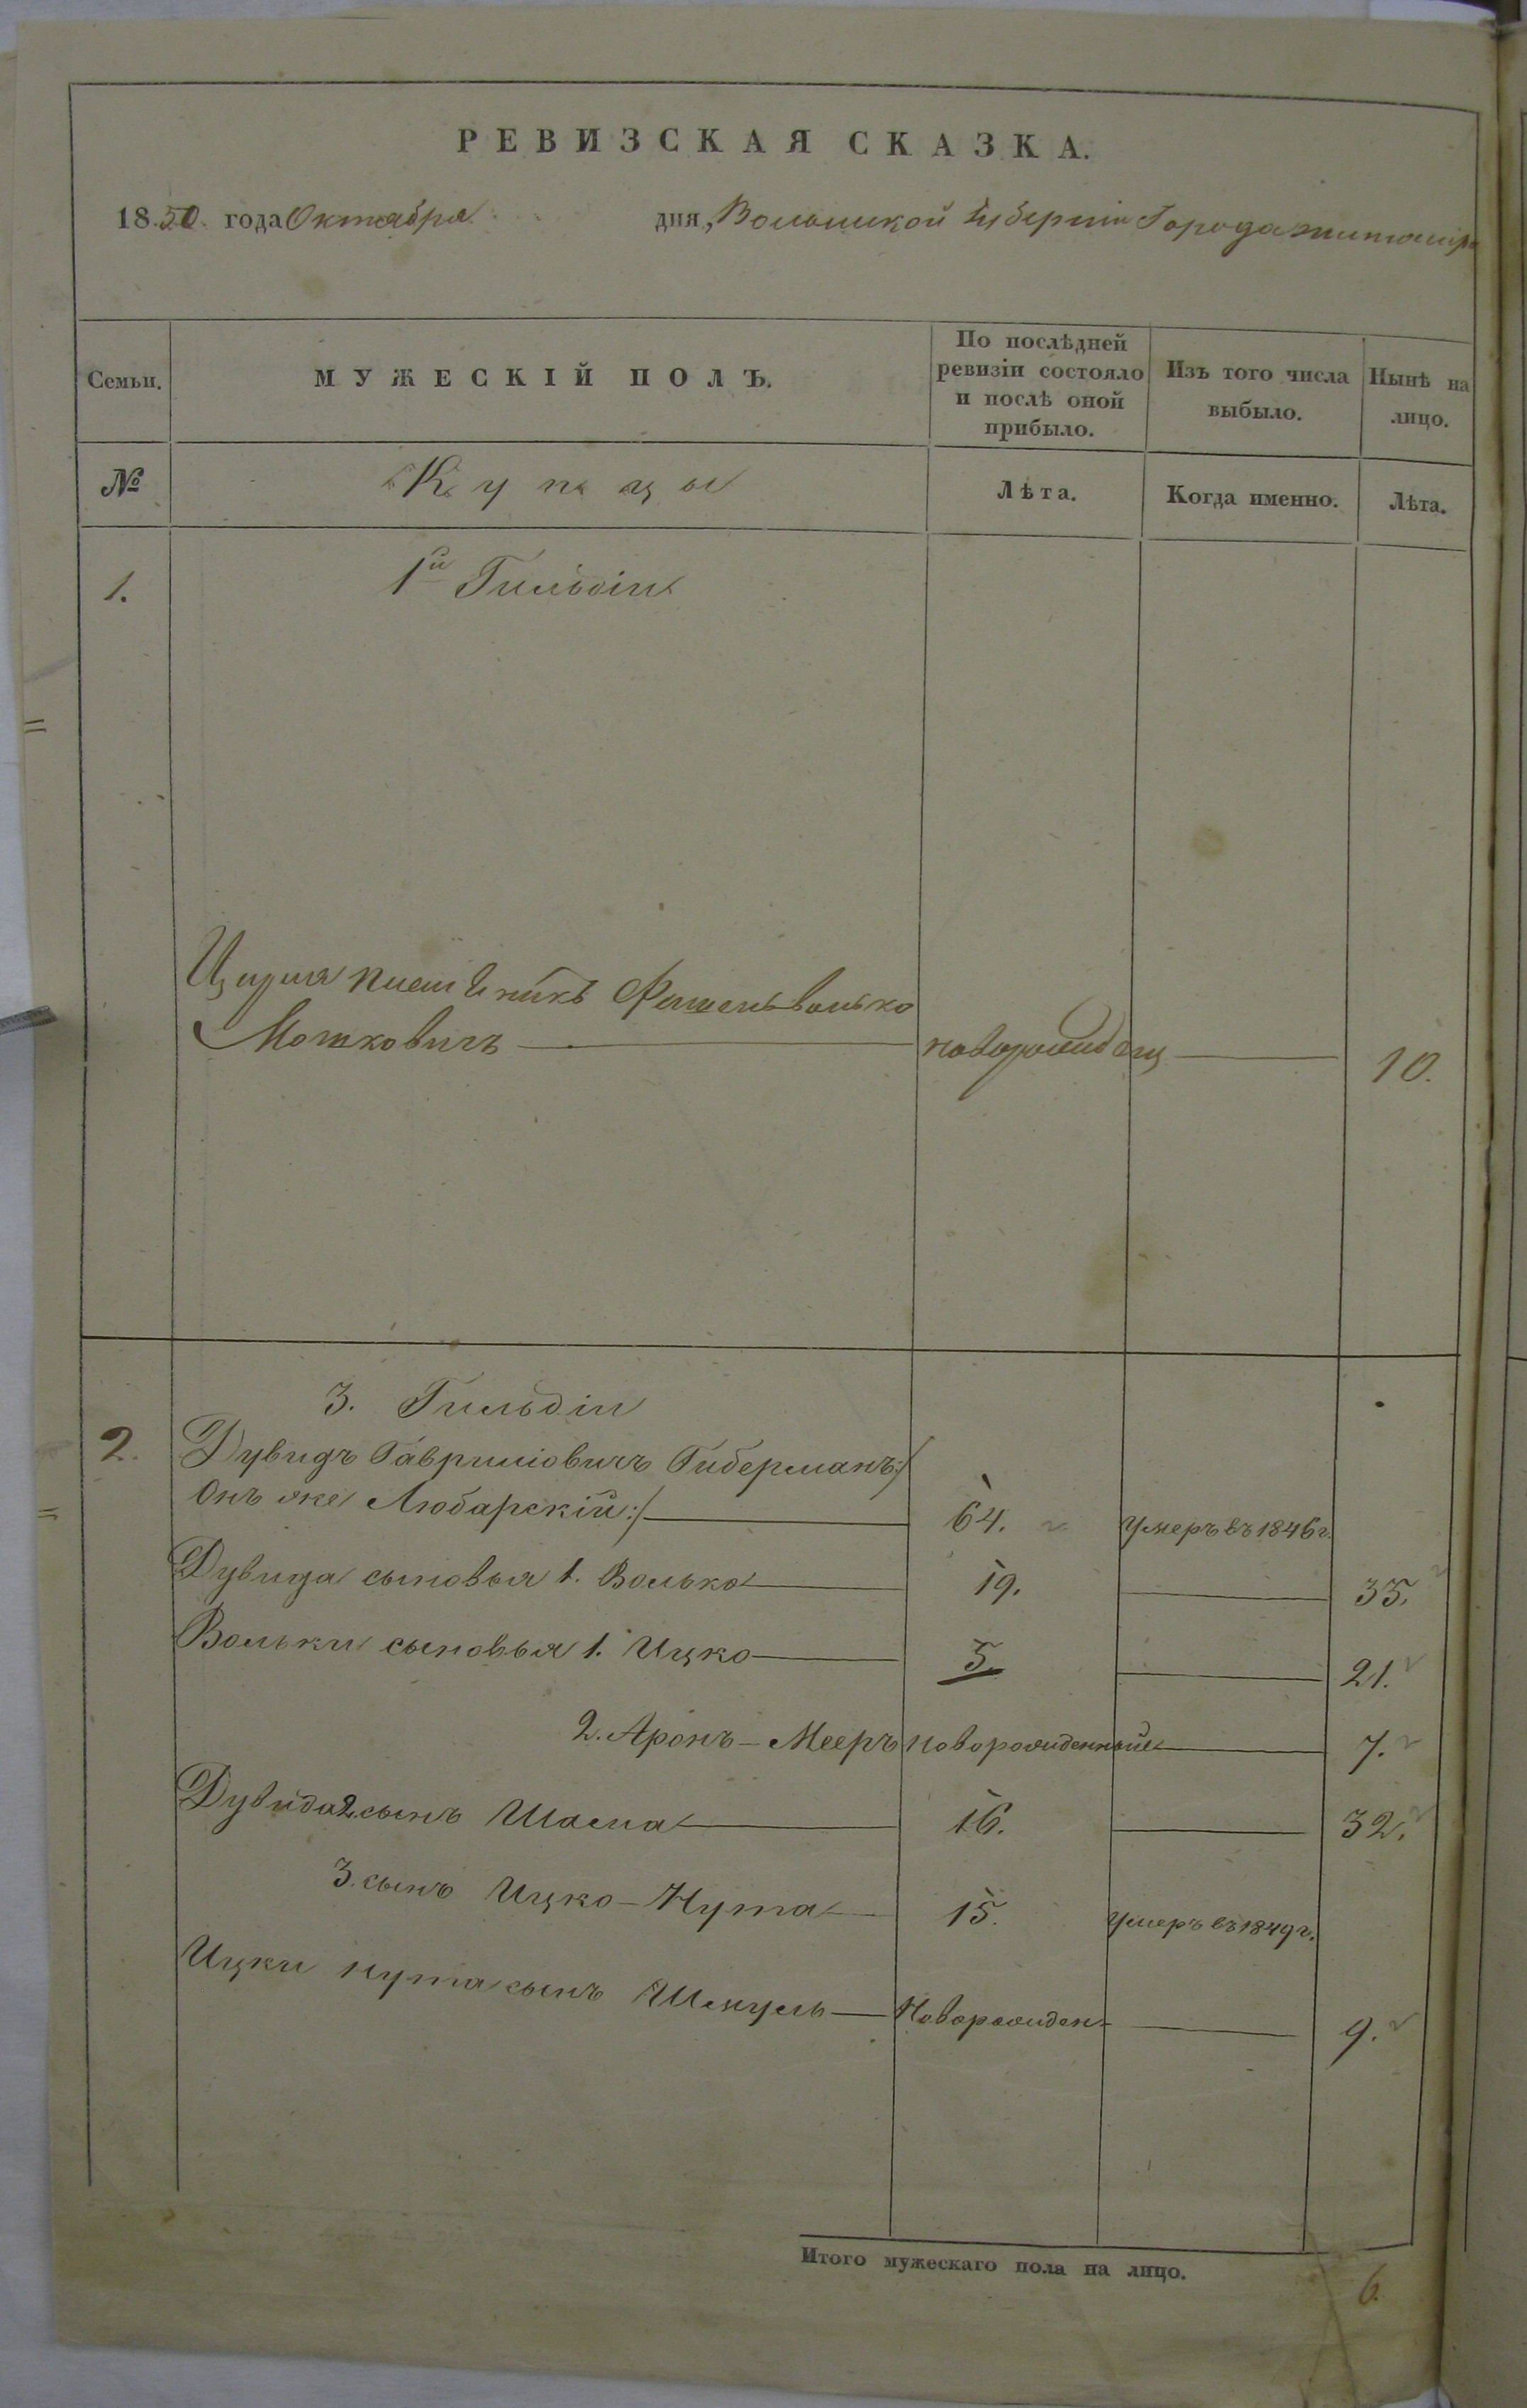 РЕВИЗСКАЯ СКАЗКА.
1850 года Октября дня, Волынской Губерніи Города Житоміра
Семьи.
МУЖЕСКІЙ ПОЛЪ.
По послѣдней
ревизіи состояло
и послѣ оной
прибыло.
Изъ того числа
выбыло.
Нынѣ на
лицо.
№
Купцы
Лѣта.
Когда именно.
Лѣта.
1.
1й Гильдіи
Фишель Волько
Мошковичъ новорожденъ 10.
3. Гильдіи
2. Дувидъ Гавриловичъ Гиберманъ:/
Онъ же Любарскій:/ 64. умеръ въ 1846 г.
Дувида сыновья 1. Волько 19. 35.
Вольки сыновья 1. Ицко 5. 21.
2. Аронъ-Мееръ новорожденный 7.
Дувида 2. сынъ Шаема 16. 32.
3. сынъ Ицко-Нута 15. умеръ въ 1849 г.
Ицки нута сынъ Шмуль Новорожден. 9.
Итого мужескаго пола на лицо. 6.